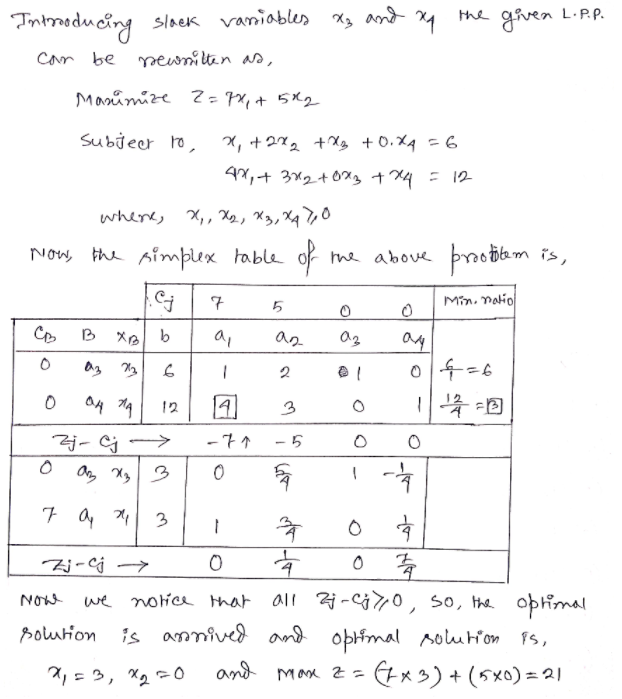 Introducing slack variables x₃ and x₄ the given L.P.P.
can be rewritten as,
Maximize Z = 7x₁ + 5x₂
Subject to, x₁ + 2x₂ + x₃ + 0.x₄ = 6
4x₁ + 3x₂ + 0x₃ + x₄ = 12
where, x₁, x₂, x₃, x₄ ≥ 0
Now, the simplex table of the above problem is,
Cj 7 5 0 0 Min. ratio
CB B XB b a₁ a₂ a₃ a₄
0 a₃ x₃ 6 1 2 1 0 6/1 = 6
0 a₄ x₄ 12 4 3 0 1 12/4 = 3
Zj - Cj → -7↑ -5 0 0
0 a₃ x₃ 3 0 5/4 1 -1/4
7 a₁ x₁ 3 1 3/4 0 1/4
Zj - Cj → 0 1/4 0 7/4
Now we notice that all Zj - Cj ≥ 0, so, the optimal
solution is arrived and optimal solution is,
x₁ = 3, x₂ = 0 and max z = (7×3) + (5×0) = 21